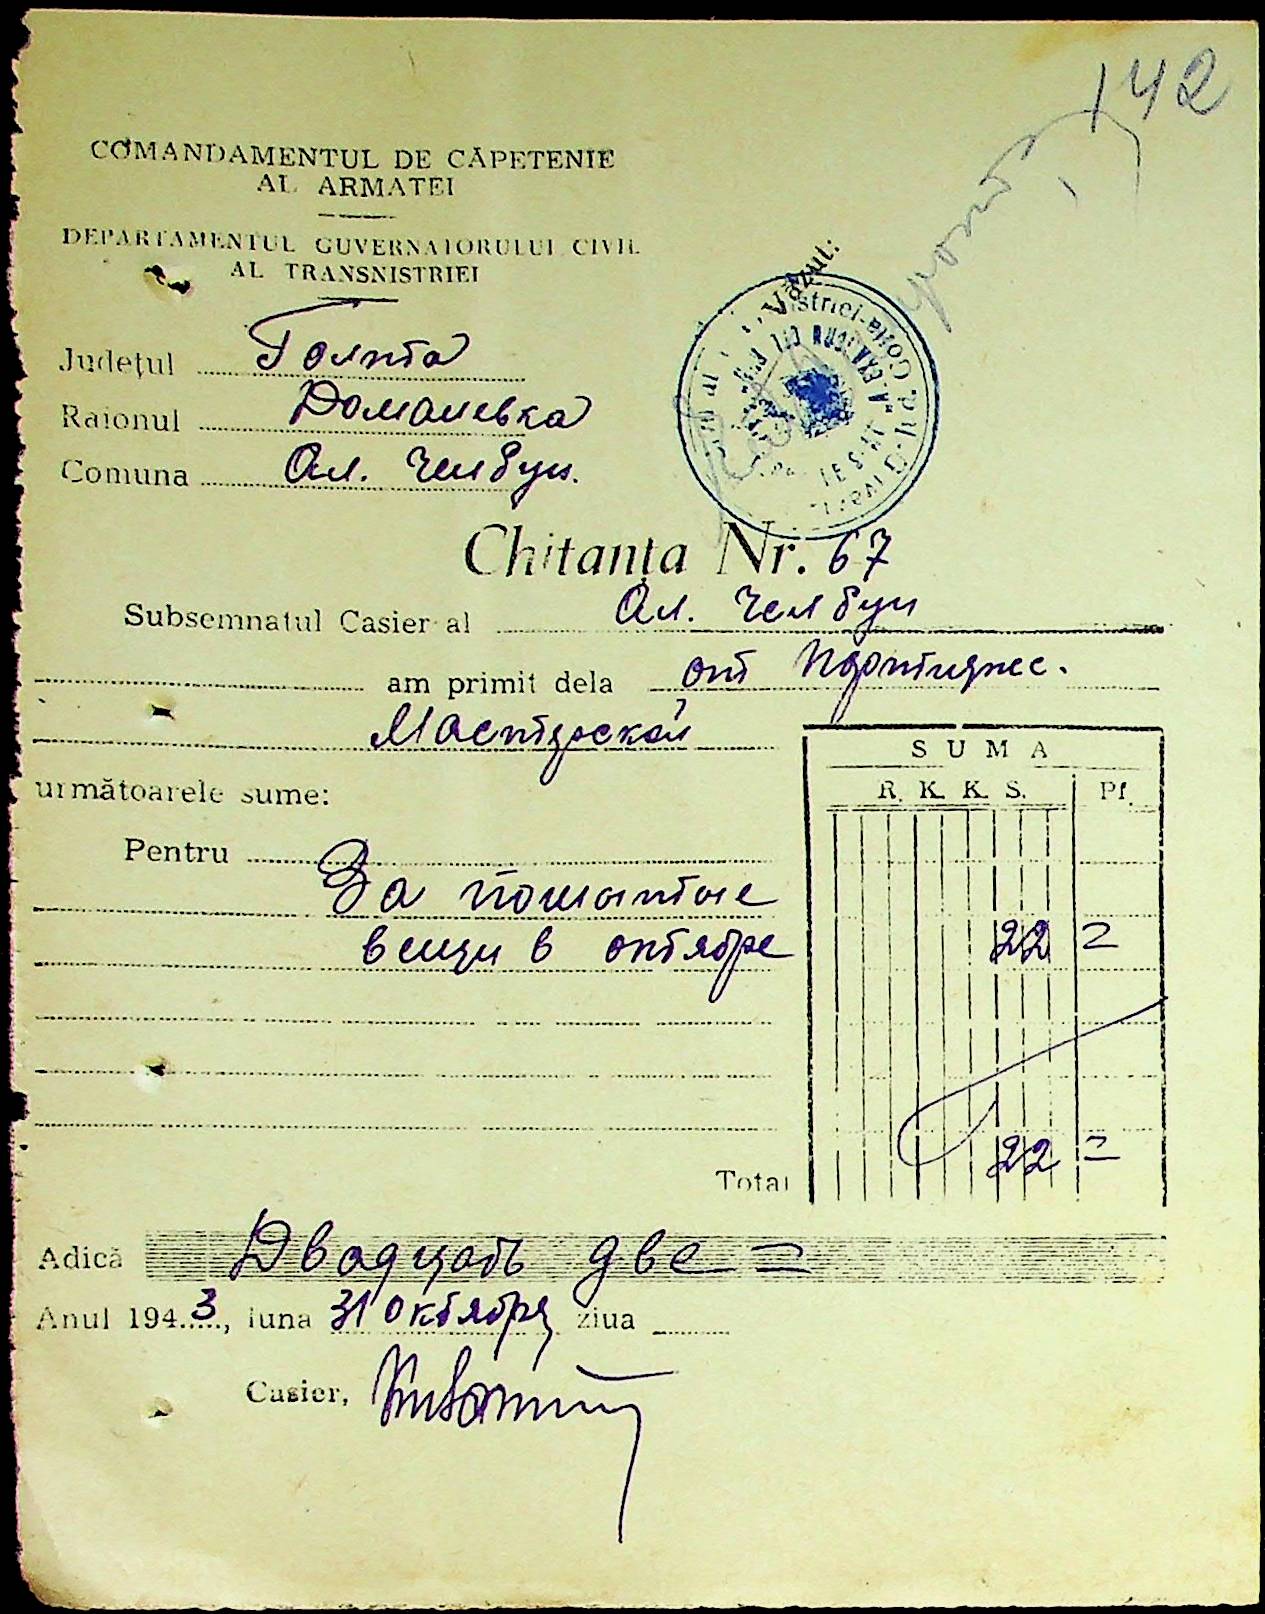 142
COMANDAMENTUL DE CĂPETENIE
AL ARMATEI
DEPARTAMENTUL GUVERNATORULUI CIVIL
AL TRANSNISTRIEI
Văzut:
Județul Голта
Raionul Доманевка
Comuna Ал. Челбун.
Chitanța Nr. 67
Subsemnatul Casier al Ал. Челбун
am primit dela от Портняжс.
Мастерской
următoarele sume:
SUMA
R. K. K. S. Pf.
Pentru
За пошитые
вещи в октябре 22 =
Total 22 =
Adică Двадцать две =
Anul 1943, luna 31 октября ziua
Casier,